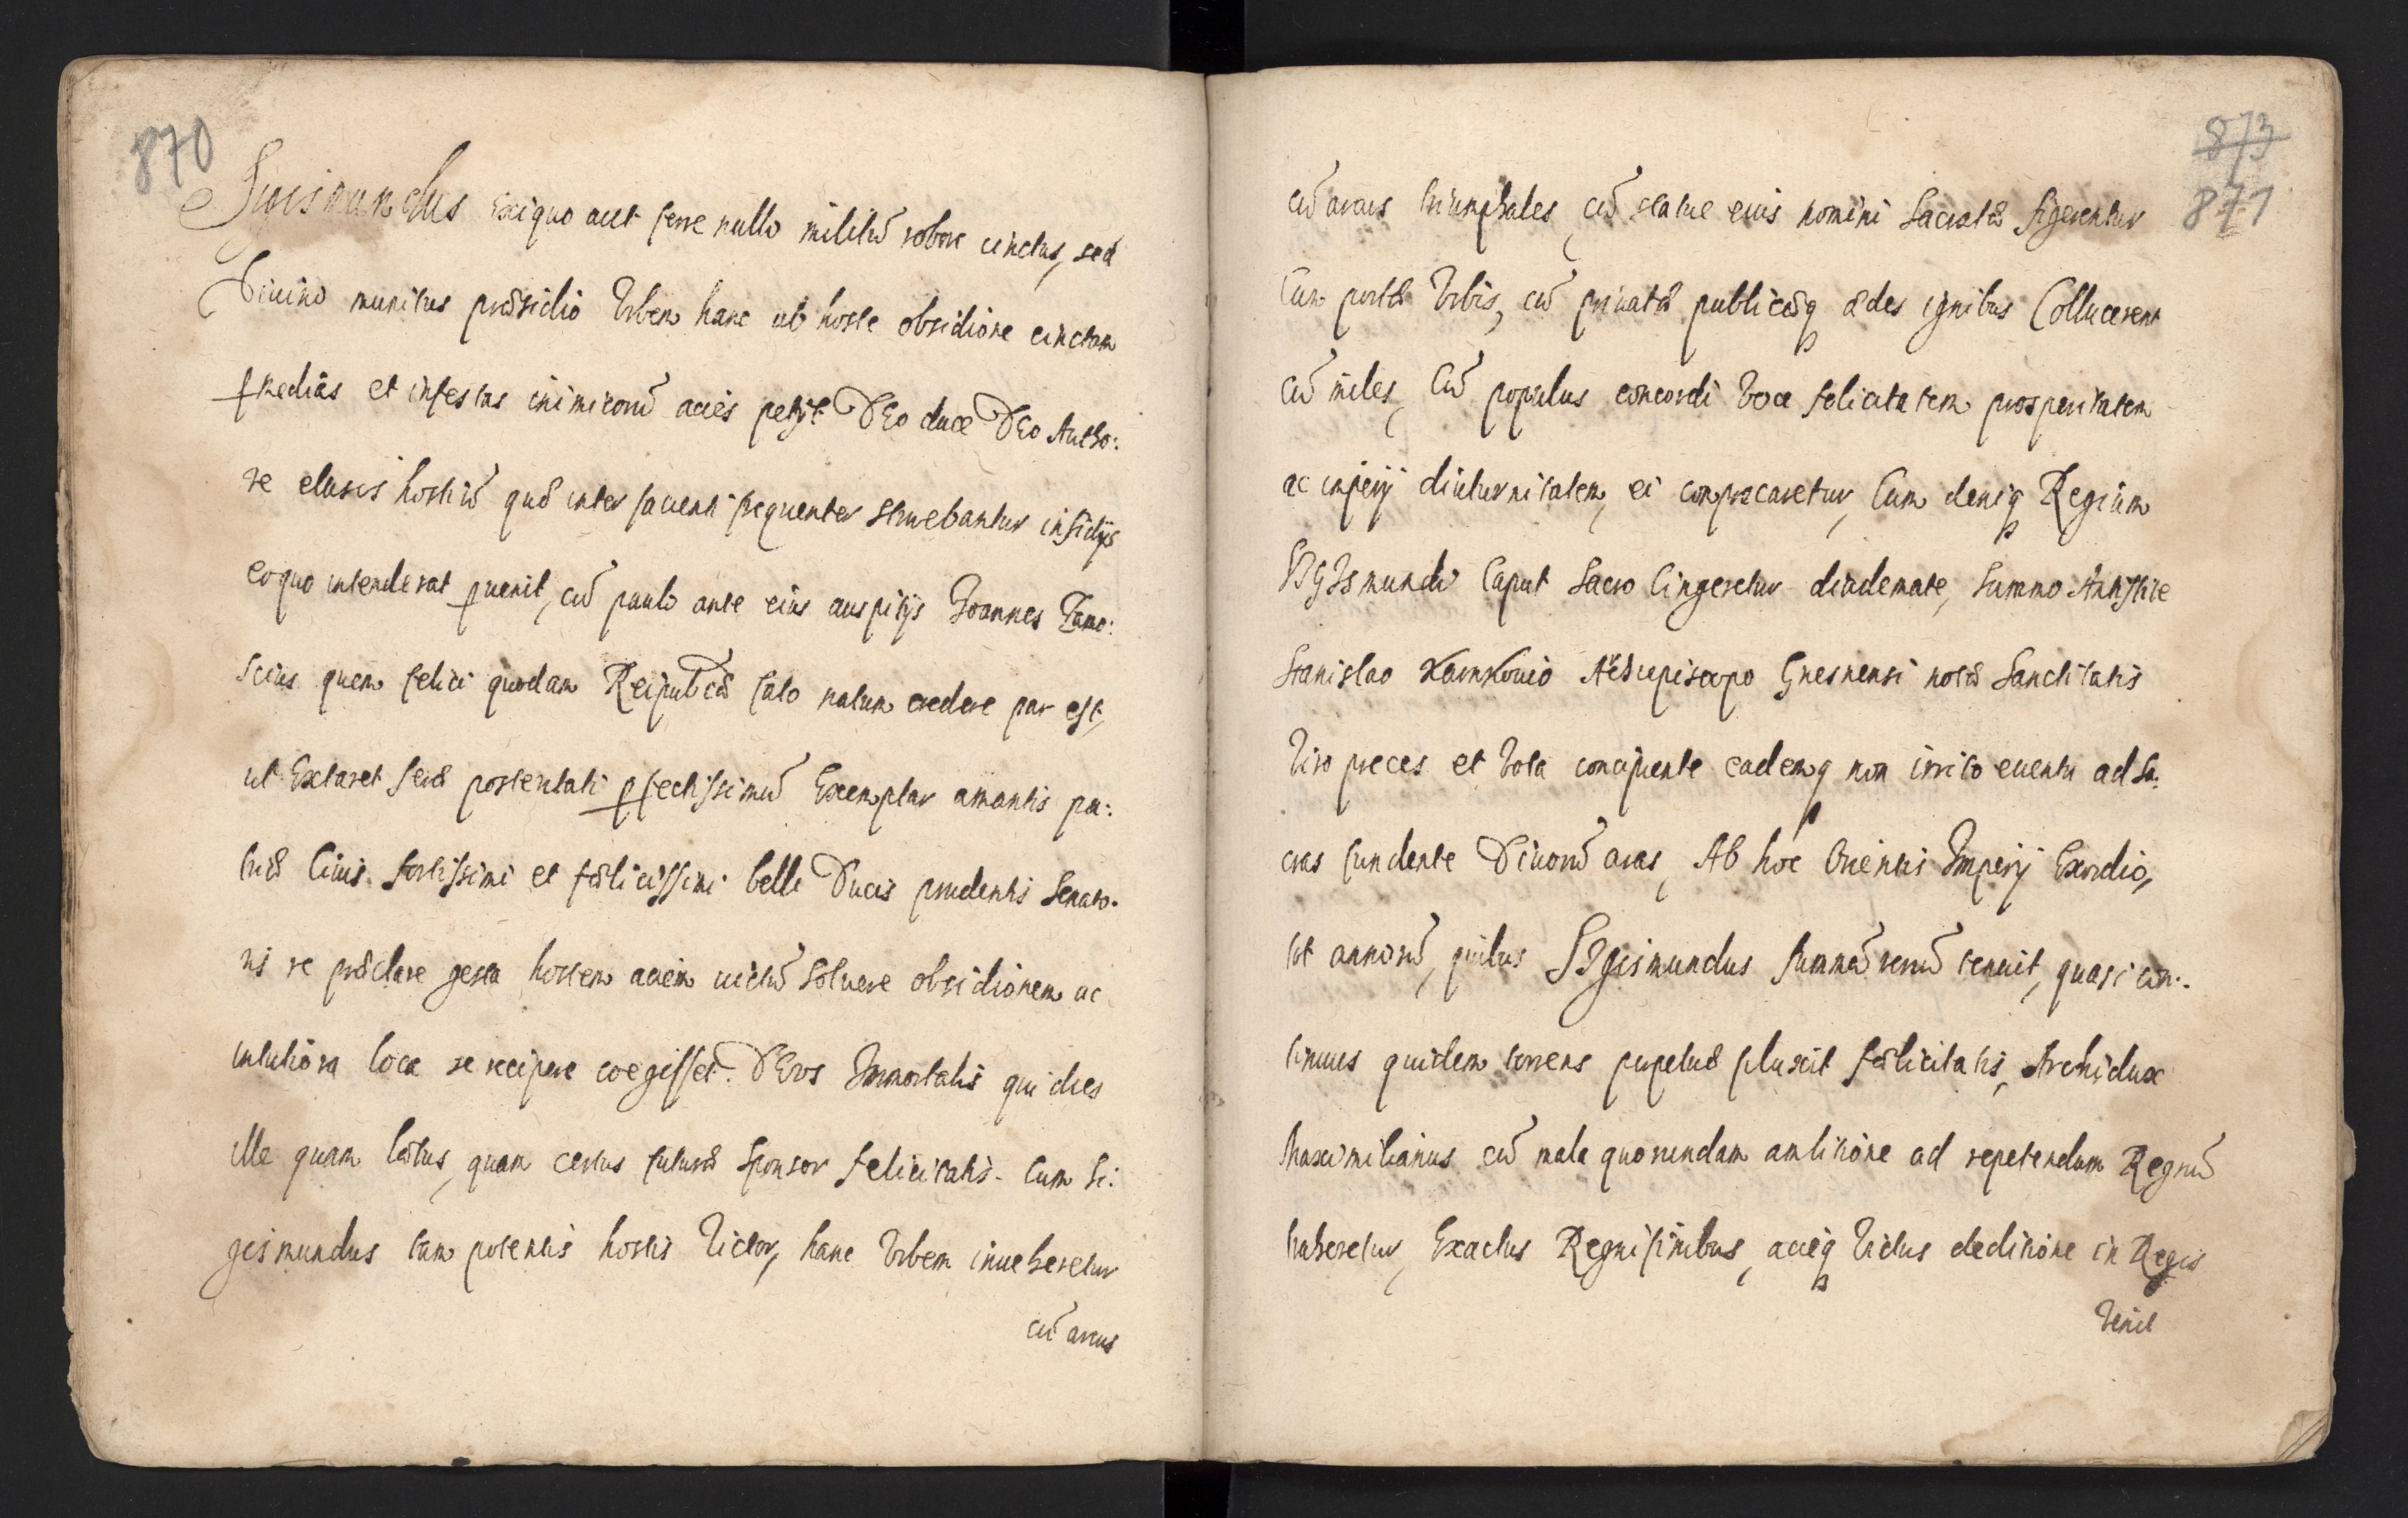 870
Sigismundus Exiguo aut ferre nullo militũ robore cinctus, sed
Diuino munitus præsidio Vrbem hanc ab hoste obsidione cinctam
p medias et infestas inimicorũ acies petijt DEo duce DEo Autho:
re elusis hostiũ quæ inter sauenti frequenter struebantur insidijs
eo quo intenderat puenit, cũ paulo ante eius auspitijs Joannes Zamo:
scius quem felici quodam Reipublcæ fato natum credere par est,
ut Extaret seræ posteritati pfectissimũ Exemplar amantis pa:
triæ Ciuis fortissimi et fælicissimi belli Ducis prudentis Senato.
ris re præclare gesta hostem aciem uictũ soluere obsidionem ac
intutiora loca se recipere coegisset. DEvs Immortalis qui dies
ille quam lætus, quam certus futuræ sponsor felicitatis. Cum Si:
gismundus tam potentis hostis Victor, hanc Vrbem inueheretur
cũ arcus
873
871
cũ arcus triumphales, cũ statue eius nomini Sacratæ figerentur
Cum portæ Vrbis, cũ priuatæ publicæq ædes ignibus Collucerent
Cũ miles, Cũ populus concordi Voce felicitatem prosperitatem
ac imperij diuturnitatem, ei comprecaretur, Cum deniq Regium
SIGISmundi Caput Sacro Cingeretur diademate, Summo Antistite
Stanislao Karnkouio Archiepiscopo Gnesnensi notæ Sanctitatis
Viro preces et Vota concipiente eademq non irrito euentu ad Sa:
cras fundente Diuorũ aras, Ab hoc Orientis Imperij Exordio,
tot annorũ, quibus SIgismundus summã rerũ tenuit, quasi con:
tinuus quidem torrens perpetuæ fluxit fælicitatis, Archidux
Maximilianus cũ mala quorundam ambitione ad repetendum Regnũ
traheretur, Exactus Regni finibus, acieq Victus deditione in Regis
Venit